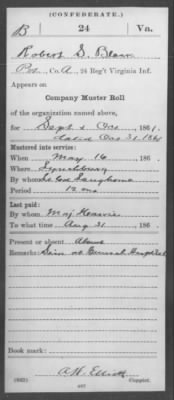 (CONFEDERATE.)
B 24 Va.
Robert S. Blair
Pvt., Co. A, 24 Reg't Virginia Inf.
Appears on
Company Muster Roll
of the organization named above,
for Sept & Oct, 1861.
dated Oct 31, 1861
Mustered into service:
When May 16, 186
Where Lynchburg
By whom Lt Col Langhorne
Period 12 mos
Last paid:
By whom Maj
To what time Aug 31, 186
Present or absent Absent
Remarks: General Hospital
Book mark:
A. W. Elliott
(642) Copyist.